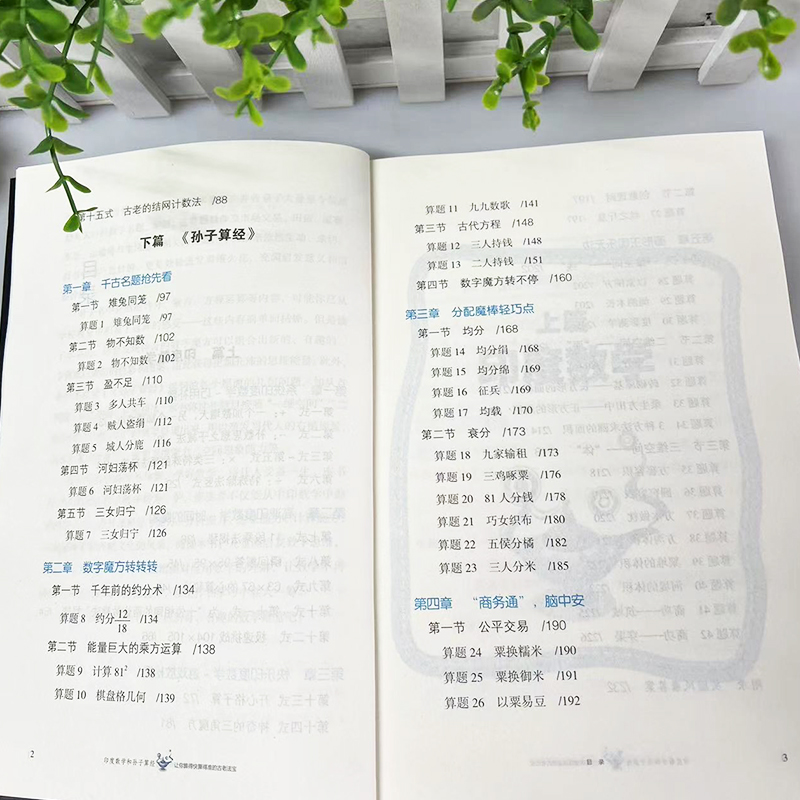 第十五式 古老的结网计数法 /88
下篇 《孙子算经》
第一章 千古名题抢先看
第一节 雉兔同笼 /97
算题1 雉兔同笼 /97
第二节 物不知数 /102
算题2 物不知数 /102
第三节 盈不足 /110
算题3 多人共车 /110
算题4 贼人盗绢 /112
算题5 城人分鹿 /116
第四节 河妇荡杯 /121
算题6 河妇荡杯 /121
第五节 三女归宁 /126
算题7 三女归宁 /126
第二章 数字魔方转转转
第一节 千年前的约分术 /134
算题8 约分12/18 /134
第二节 能量巨大的乘方运算 /138
算题9 计算81² /138
算题10 棋盘格几何 /139
2 印度数学和孙子算经 让你算得快算得准的古老法宝
算题11 九九数歌 /141
第三节 古代方程 /148
算题12 三人持钱 /148
算题13 二人持钱 /151
第四节 数字魔方转不停 /160
第三章 分配魔棒轻巧点
第一节 均分 /168
算题14 均分绢 /168
算题15 均分绵 /169
算题16 征兵 /169
算题17 均载 /170
第二节 衰分 /173
算题18 九家输租 /173
算题19 三鸡啄粟 /176
算题20 81人分钱 /178
算题21 巧女织布 /180
算题22 五侯分橘 /182
算题23 三人分米 /185
第四章 “商务通”，脑中安
第一节 公平交易 /190
算题24 粟换糯米 /190
算题25 粟换御米 /191
算题26 以粟易豆 /192
目录 3